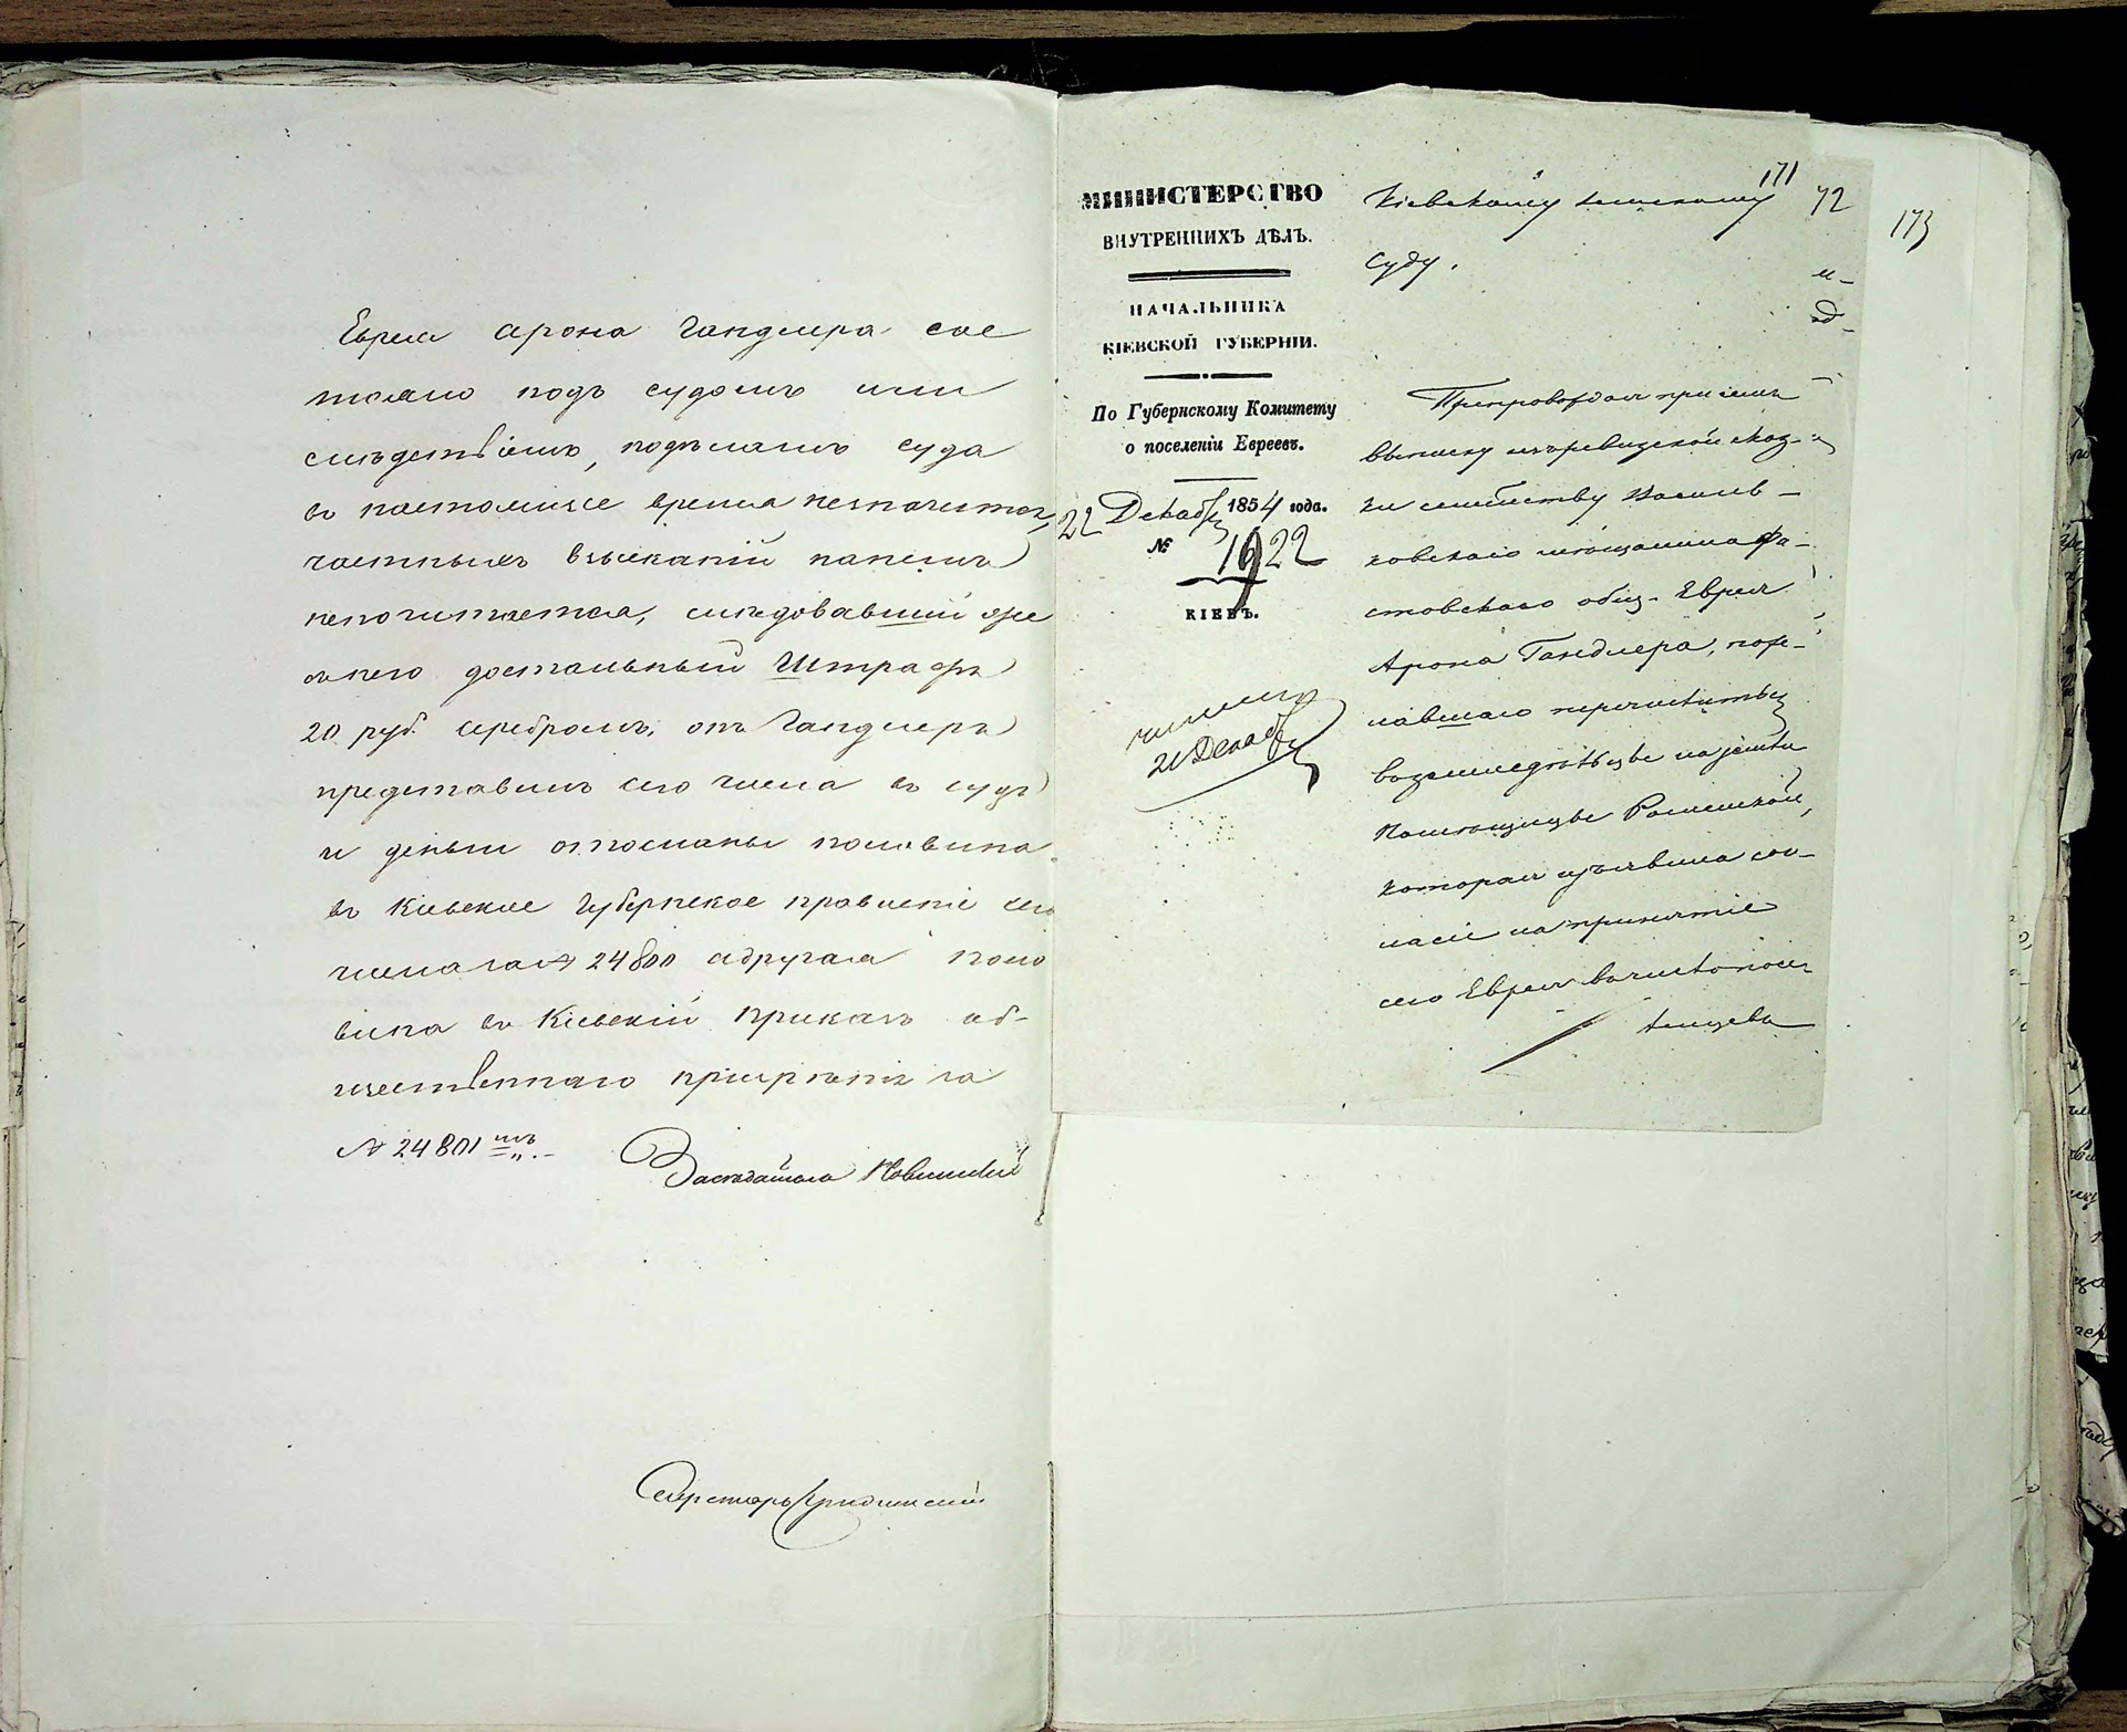 Еврея Арона Гандлера сос
тояло подъ судомъ или
следствіемъ, подѣламъ суда
въ настоящее время незначится,
частныхъ взысканій нанемъ
непочитается, следовавший же
снего достальный Штрафъ
20 руб. серебромъ, онъ Гандлеръ
представилъ сего числа въ судъ
и деньги отосланы половина
въ Кіевское Губернское правленіе сего
числа за № 24800 а другая поло
вина въ Кіевскій приказъ об-
щественнаго призрѣнія за
№ 24801 мъ
Заседатель
Секретарь
МИНИСТЕРСТВО
ВНУТРЕННИХЪ ДѢЛЪ.
НАЧАЛЬНИКА
КІЕВСКОЙ ГУБЕРНІИ.
По Губернскому Комитету
о поселеніи Евреевъ.
22 Декаб 1854 года.
№ 1922
КІЕВЪ.
21 Декаб
171
72
173
Кіевскому земскому
суду.
Препровождая при семъ
выписку изъ ревизской сказ-
ки семейству Василь-
ковскаго мещанина Фа-
стовскаго общ. Еврея
Арона Гандлера, поже-
лавшаго перечислиться
въ земледѣльцы на земли
Помещицы
которая изъявила сог-
ласіе на принятіе
сего Еврея въ число посе-
ленцевъ